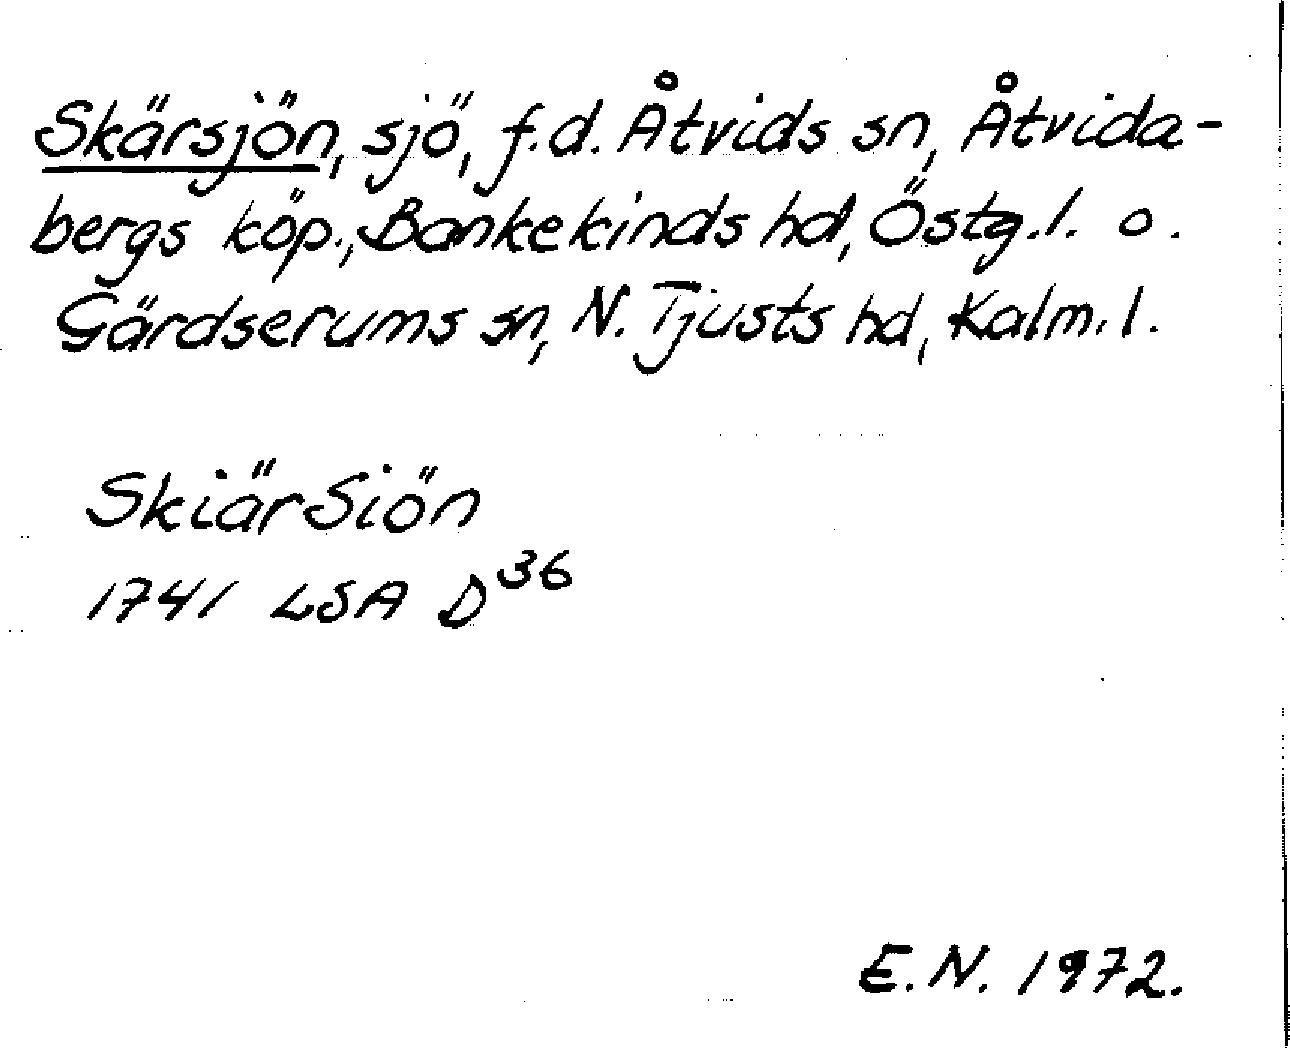 Skärsjön, sjö, f.d. Åtvids sn, Åtvida-
bergs köp., Bankekinds hd, Östg.l. o.
Gärdserums sn, N. Tjusts hd, Kalm.l.
SkiärSiön
1741 LSA D36
E.N. 1972.